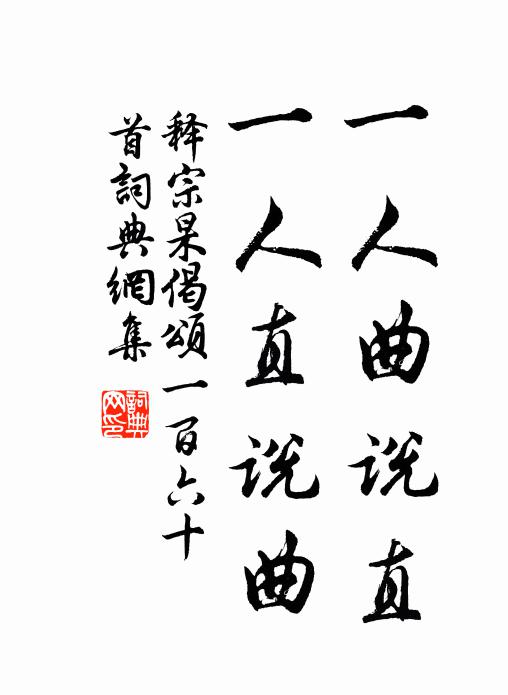 一人曲说直
一人直说曲
释宗杲偈頌一百六十
首詞典網集
詞典网印